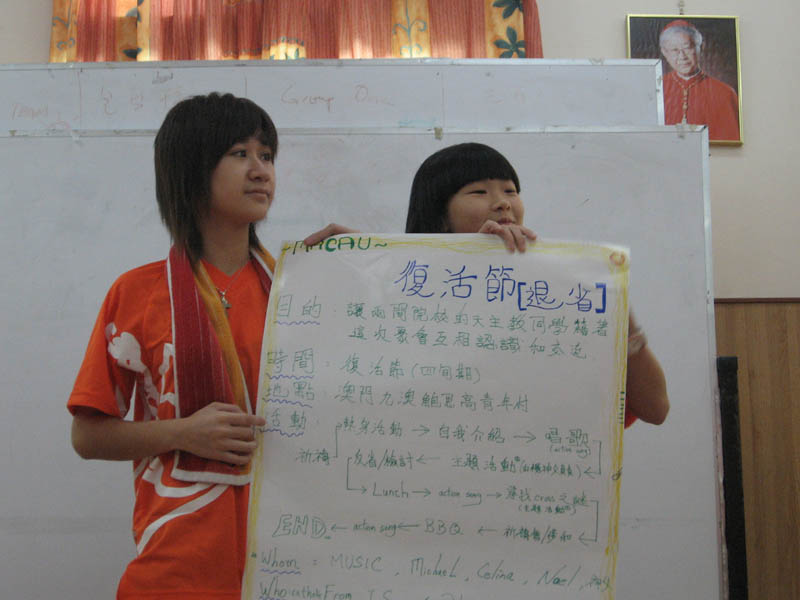 Group
~MACAU~
復活節[退省]
目的：讓兩間開放的天主教同學藉著
這次聚會互相認識和交流
時間：復活節(四旬期)
地點：澳門九澳鮑思高青年村
活動：熱身活動→自我介紹→唱歌
(action song)
祈禱 反省/檢討←主題活動
Lunch→action song→尋找cross之謎
(主題活動)
END←action song←BBQ←祈禱會/
Whom = MUSIC, Michael, Celina, Noel,
From